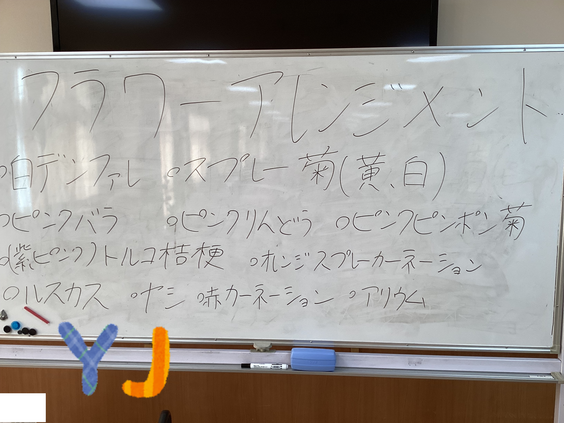 フラワーアレンジメント
○白デンファレ ○スプレー菊(黄、白)
○ピンクバラ ○ピンクりんどう ○ピンクピンポン菊
○(紫ピンク)トルコ桔梗 ○オレンジスプレーカーネーション
○ルスカス ○ヤシ ○赤カーネーション ○アリウム
YJ